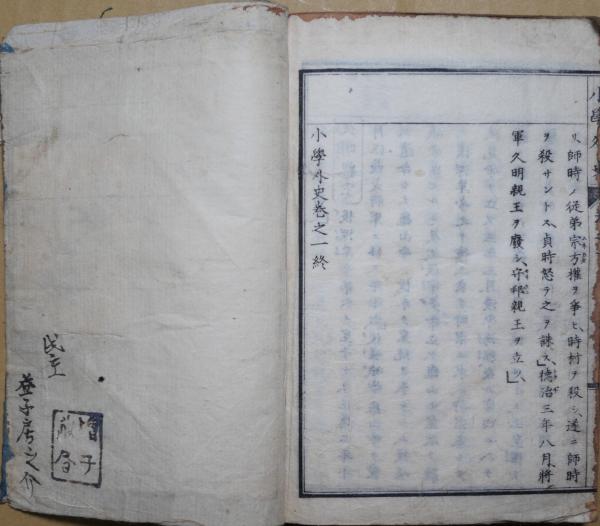 小學外史
リ、師時ノ從弟宗方權ヲ爭ヒ、時村ヲ殺シ、遂ニ師時
ヲ殺サントス、貞時怒テ之ヲ誅ス、」德治三年八月、將
軍久明親王ヲ廢シ、守邦親王ヲ立ツ、」
小學外史卷之一終
民主
益子房之介